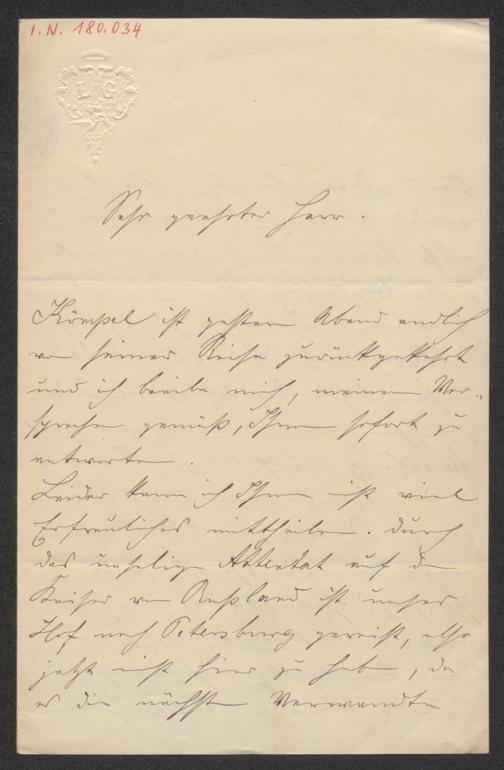 I.N. 180.034
L G
Sehr geehrter Herr.
Kömpel ist gestern Abend endlich
von seiner Reise zurückgekehrt
und ich beeile mich, meinem Ver-
sprechen gemäß, Ihnen sofort zu
antworten.
Leider kann ich Ihnen nicht viel
Erfreuliches mittheilen. Durch
das unselige Attentat auf den
Kaiser von Rußland ist unser
Hof nach Petersburg gereist, also
jetzt nicht hier zu haben, da
es die nächsten Verwandten